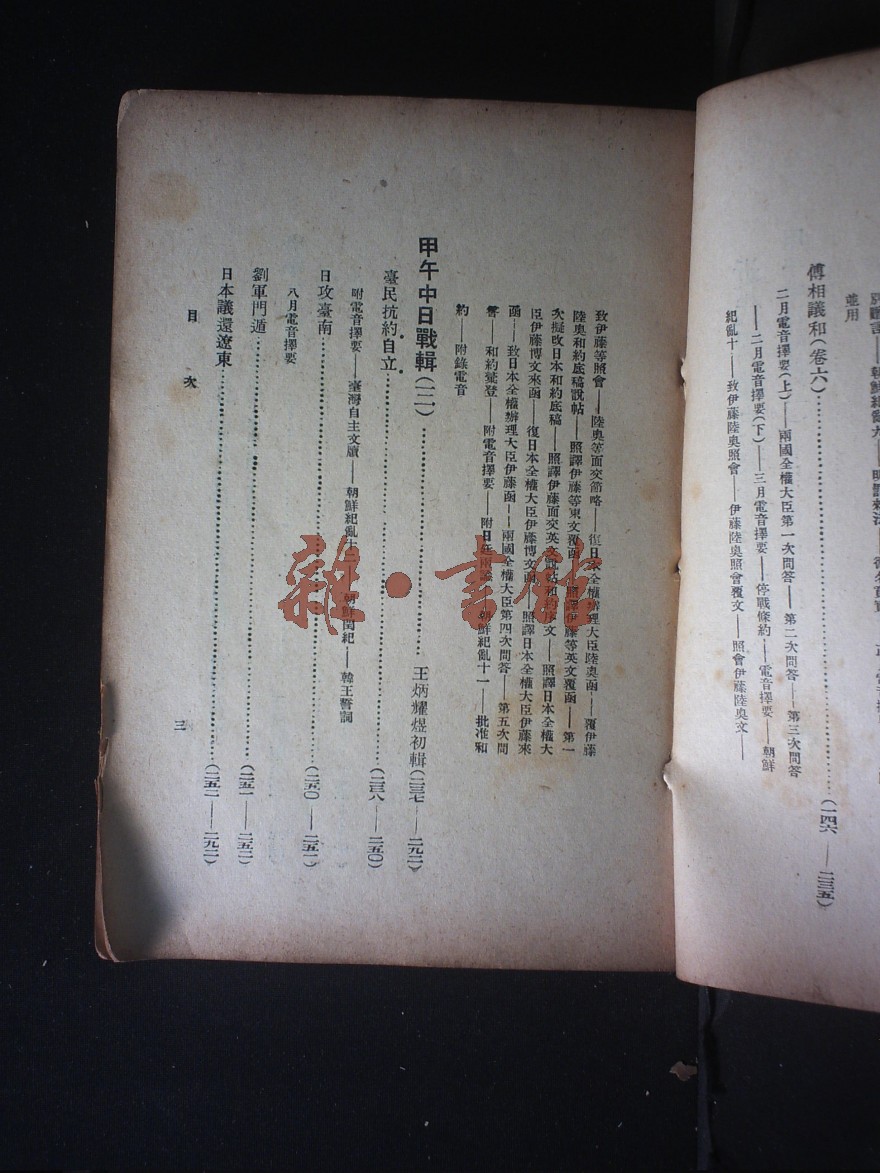 並用
傅相議和(卷六)……(一四六——二三五)
二月電音擇要(上)——兩國全權大臣第一次問答——第二次問答——第三次問答
——二月電音擇要(下)——三月電音擇要——停戰條約——電音擇要——朝鮮
紀亂十——致伊藤陸奧照會——伊藤陸奧照會覆文——照會伊藤陸奧文——
致伊藤等照會——陸奧等面交節略——復日本全權辦理大臣陸奧函——覆伊藤
陸奧和約底稿說帖——照譯伊藤等東文覆函——照譯伊藤等英文覆函——第一
次擬改日本和約底稿——照譯伊藤面交英文說帖和約序文——照譯日本全權大
臣伊藤博文來函——復日本全權大臣伊藤博文函——照譯日本全權大臣伊藤來
函——致日本全權辦理大臣伊藤函——兩國全權大臣第四次問答——第五次問
答——和約彙登——附電音擇要——附日廷兩議——朝鮮紀亂十一——批准和
約——附錄電音
甲午中日戰輯(二)……王炳耀煜初輯(二三七——二九二)
臺民抗約自立……(二三八——二五〇)
附電音擇要——臺灣自主文牘——朝鮮紀亂十 朝鮮閔紀——韓王誓詞
日攻臺南……(二五〇——二五一)
八月電音擇要
劉軍門遁……(二五一——二五二)
日本議還遼東……(二五二——二九二)
目次
三
雜·書館